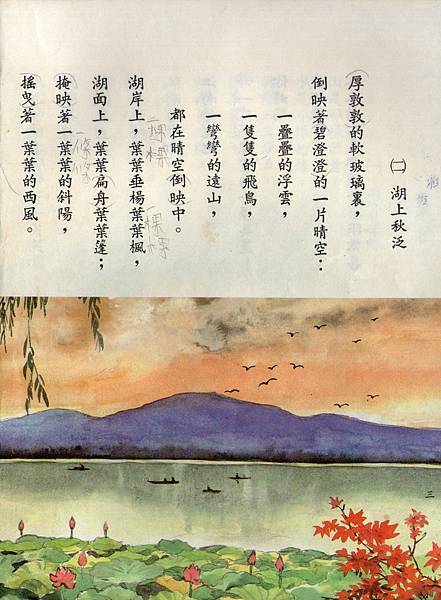 ㈡ 湖上秋泛
厚敦敦的軟玻璃裏，
倒映著碧澄澄的一片晴空：
一疊疊的浮雲，
一隻隻的飛鳥，
一彎彎的遠山，
都在晴空倒映中。
湖岸上，葉葉垂楊葉葉楓，
湖面上，葉葉扁舟葉葉篷；
掩映著一葉葉的斜陽，
搖曳著一葉葉的西風。
三